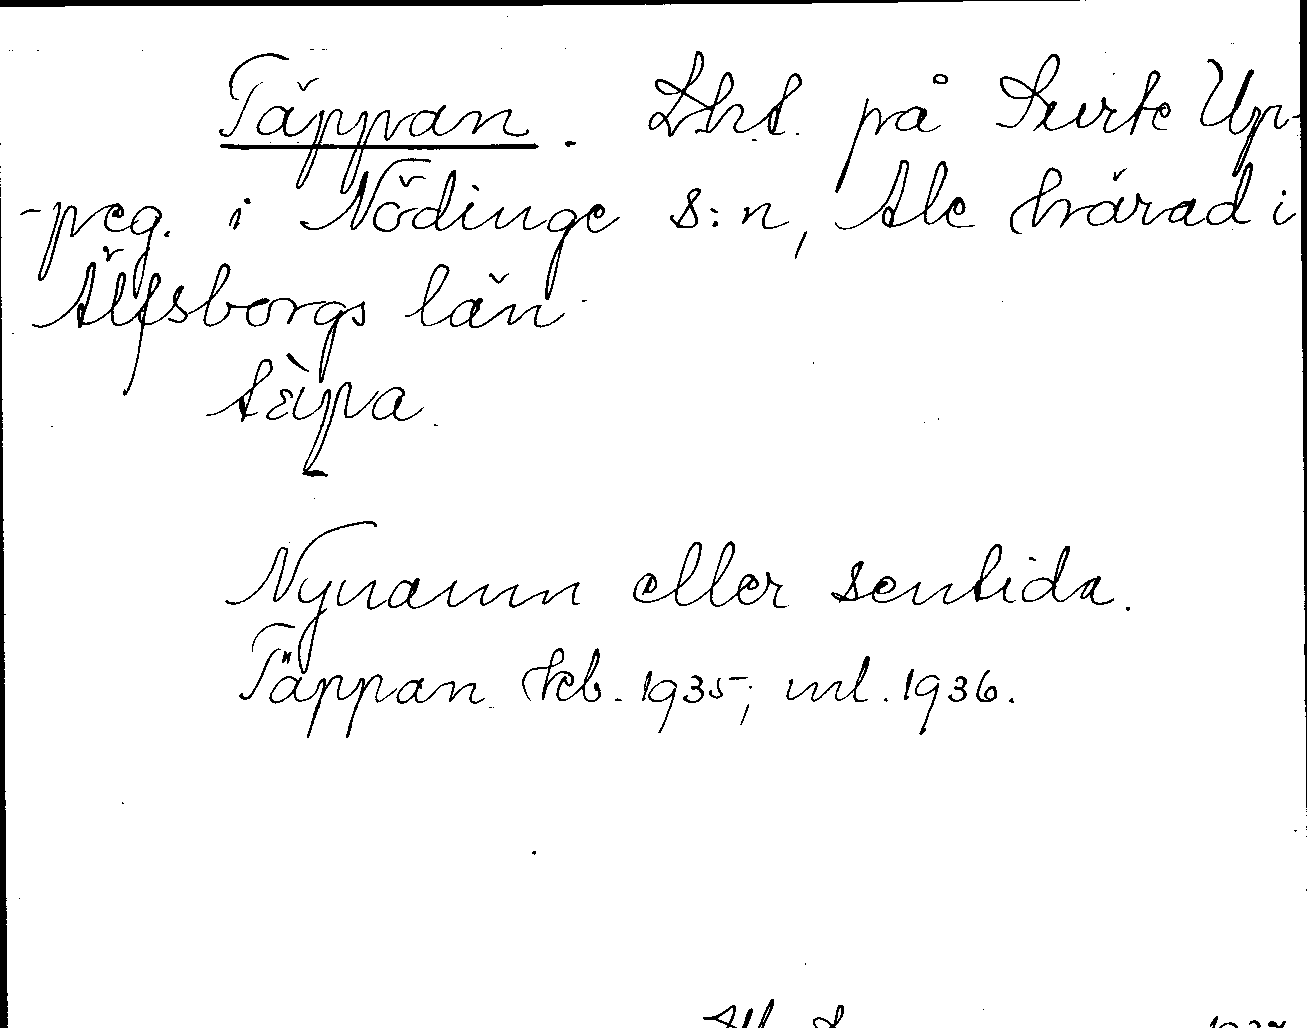 Täppan. Lht. på Surte Up-
-peg. i Nödinge s:n, Ale härad i
Älfsborgs län
tæ̀pa
Nynamn eller sentida.
Täppan kb. 1935; ml. 1936.